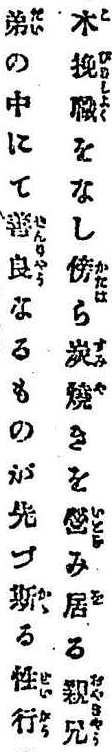 木挽職をなし傍ら炭燒きを營み居る親兄
弟の中にて善良なるものが先づ斯る性行